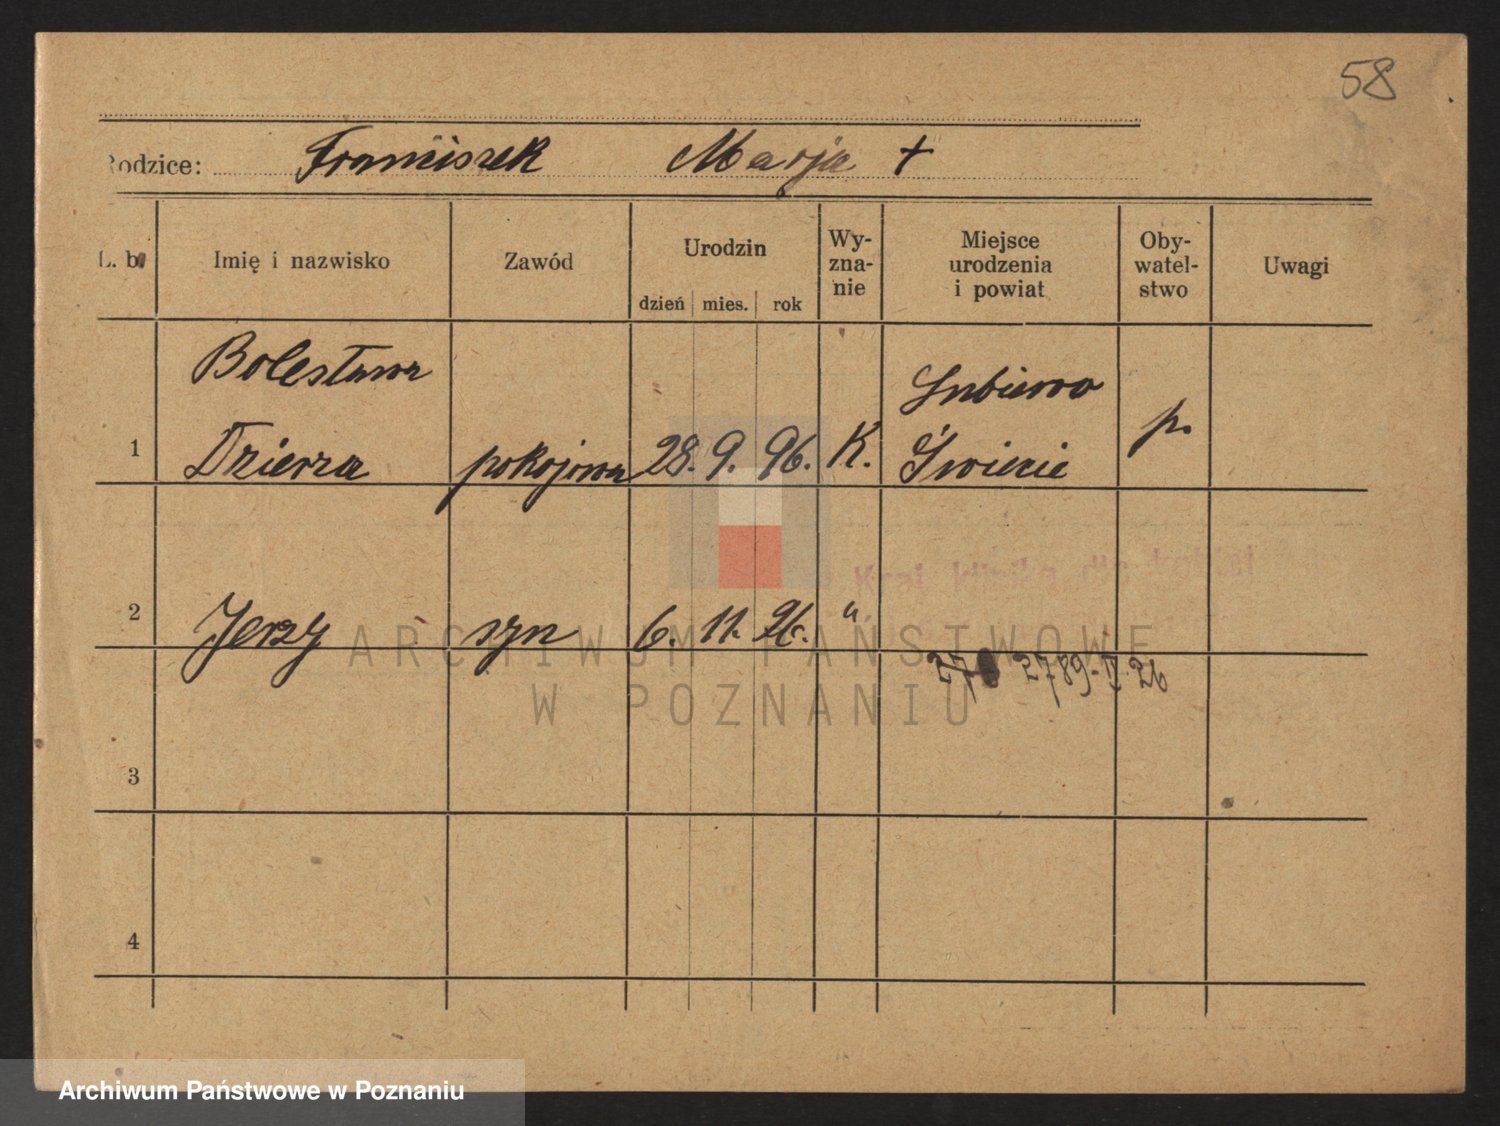 58
Rodzice: Franciszek Marja +
L. b.
Imię i nazwisko
Zawód
Urodzin
dzień mies. rok
Wy-
zna-
nie
Miejsce
urodzenia
i powiat
Oby-
watel-
stwo
Uwagi
Bolesława
Lubiewo
1 Dzierza pokojowa 28. 9. 96. K. Świecie p.
2 Jerzy syn 6. 11. 26. "
ARCHIWUM PAŃSTWOWE
W POZNANIU
3
4
Archiwum Państwowe w Poznaniu